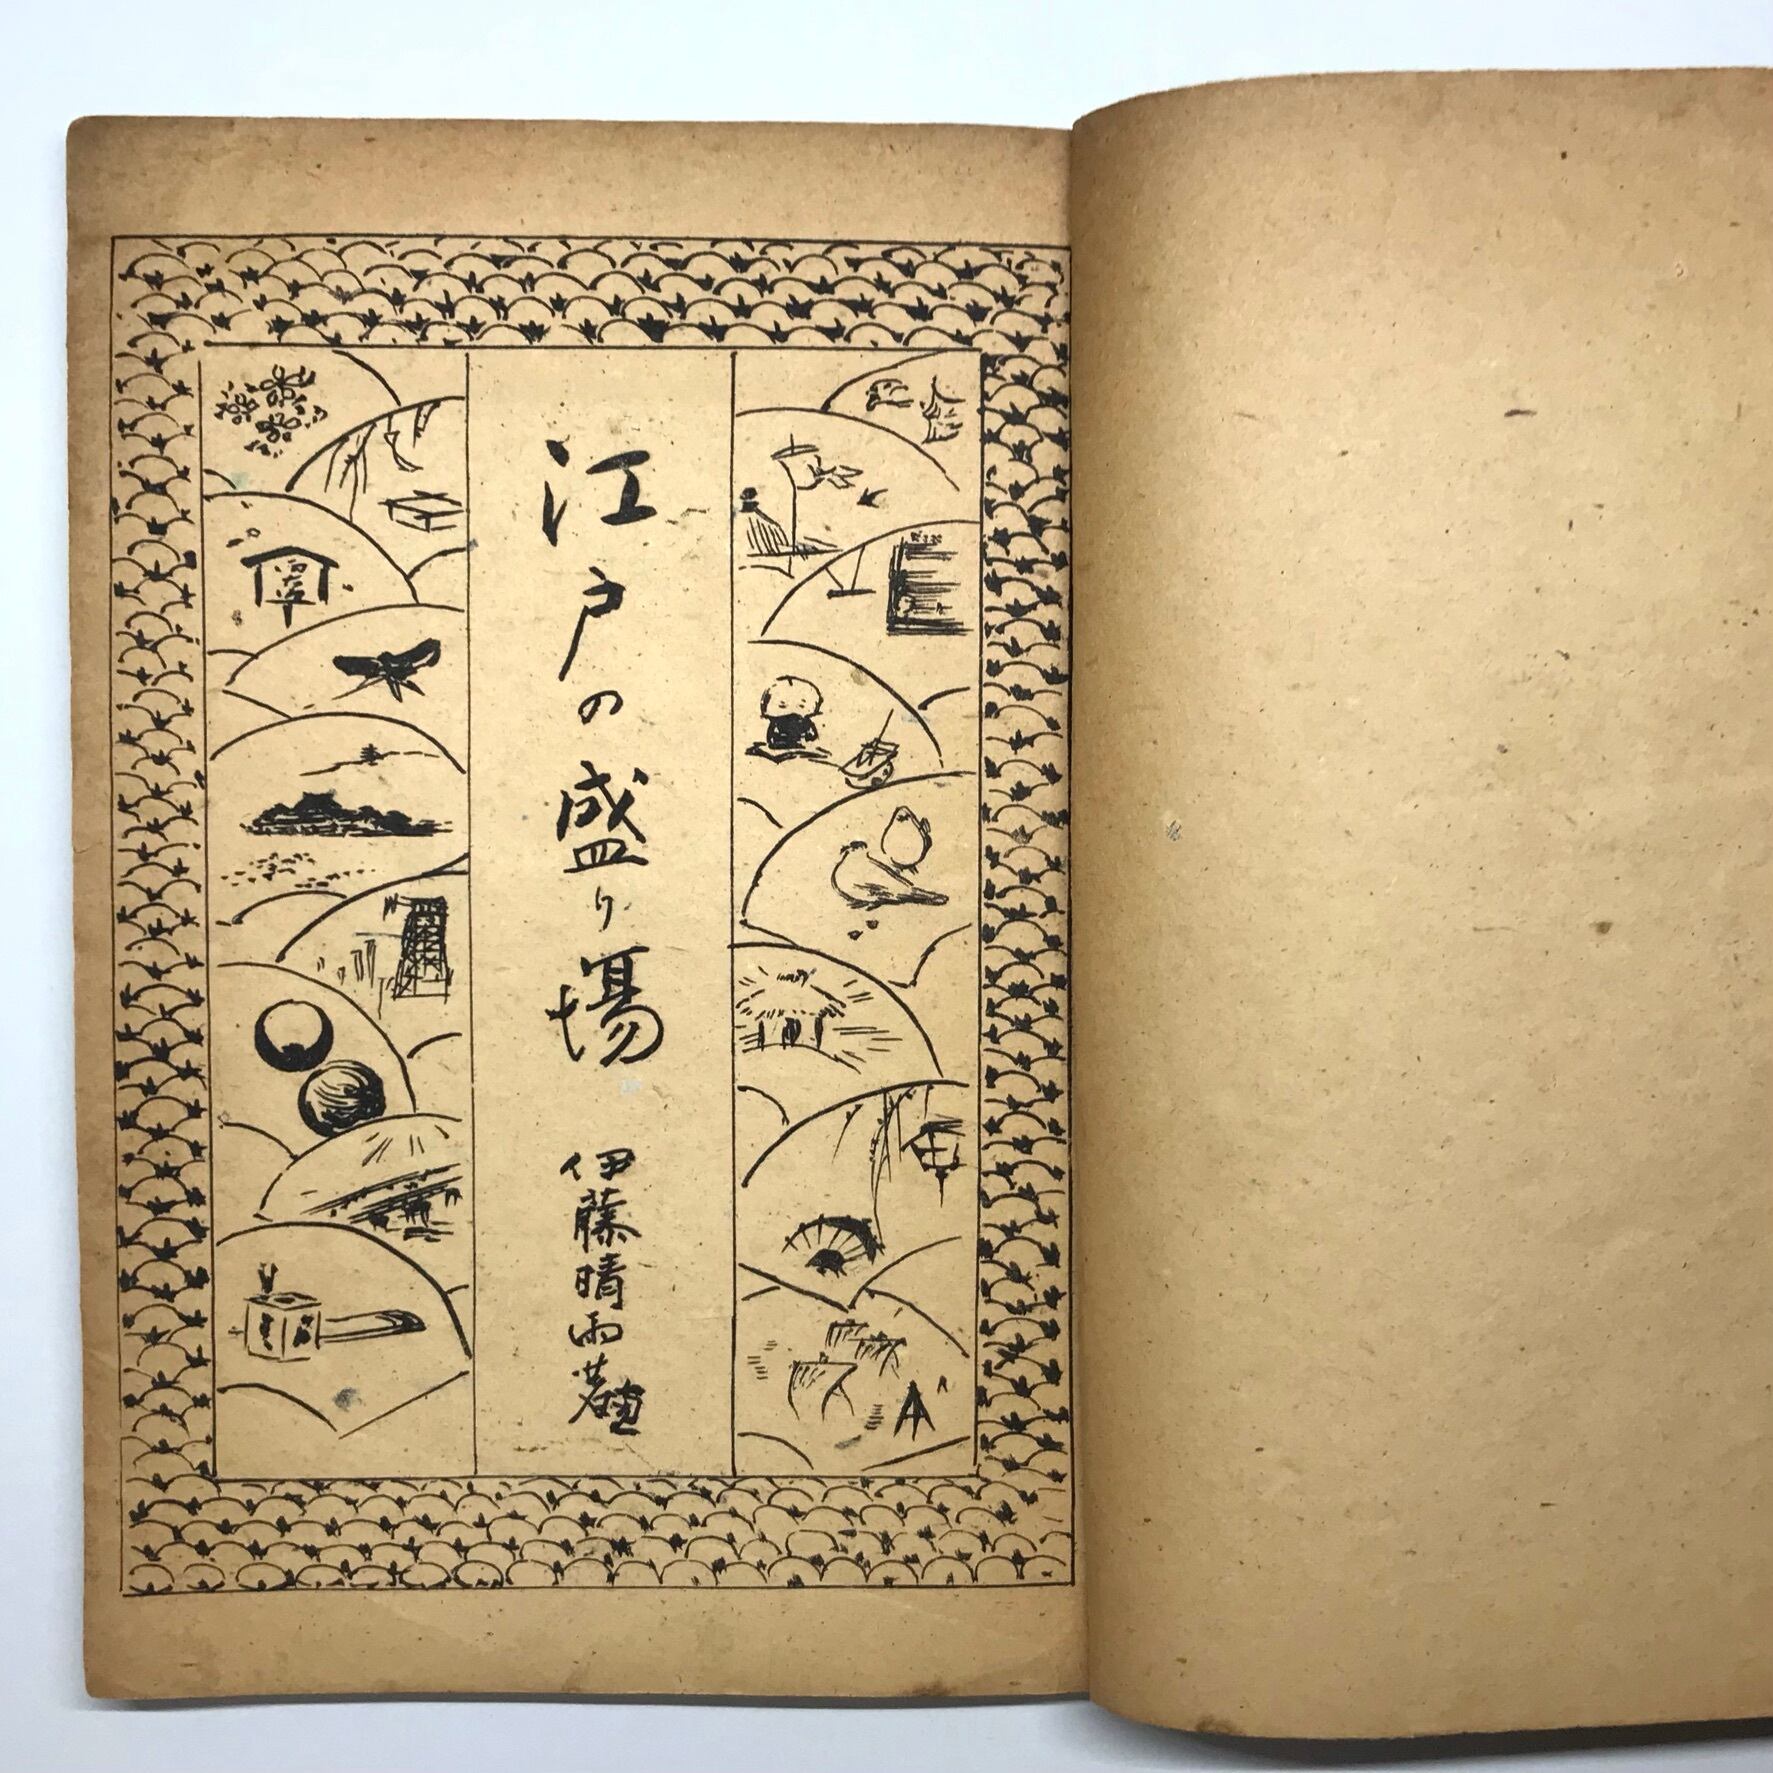 江戸の盛り場
伊藤晴雨著画